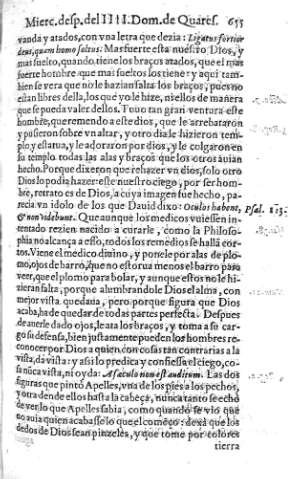 Mierc. desp. del IIII. Dom. de Quares. 655
vanda y atados, con vna letra que dezia: Ligatus fortior
deus, quam homo soltus. Mas fuerte està nuestro Dios, y
mas suelto, quando, tiene los braços atados, que el mas
fuerte hombre que mas sueltos los tiene: y aqui tam-
bien se vera que no le hazian falta los braços, pues no
estan libres della, los que yo le hize, ni ellos de manera
que se pueda valer dellos. Tuuo tan gran ventura este
hombre, queremendo a este dios, que le arrebataron
y pusieron sobre vn altar, y otro dia le hizieron tem-
plo y estatua, y le adoraron por dios, y le colgaron en
su templo todas las alas y braços que los otros auian
hecho. Porque dixeron que rehazer vn dios, solo otro
Dios lo podia hazer: este nuestro ciego, por ser hom-
bre, retrato es de Dios, a cuya imagen fue hecho, pa-
recia vn idolo de los que Dauid dixo: Oculos habent,
& non videbunt. Que aunque los medicos vuiessen in-
Psal. 113.
tentado rezien nacido a curarle, como la Philoso-
phia no alcança a esso, todos los remedios se hallā cor-
tos. Viene el medico diuino, y ponele por alas de plo-
mo, ojos de barro, que no estorua menos el barro para
ver, que el plomo para bolar, y aunque estos no le hi-
zieran falta, porque alumbrandole Dios el alma, con
mejor vista quedaua, pero porque figura que Dios
acaba, ha de quedar de todas partes perfecta. Despues
de auerle dado ojos, le ata los braços, y toma a se car-
go su defensa, bien justamente pueden los hombres re-
conocer por Dios a quien con cosas tan contrarias a la
vista, dà vista y assi lo predica y confiessa el ciego, co-
sa nūca vista, ni oyda: A sæculo non est auditum. Las dos
figuras que pintò Apelles, vna de los pies a los pechos,
y otra dende ellos hasta la cabeça, nunca tanto se echò
de ver lo que Apelles sabia, como quando se vio que
no auia quien acabasse lo que el començò: dexà que los
dedos de Dios sean pinzeles, y que tome por colores
tierra